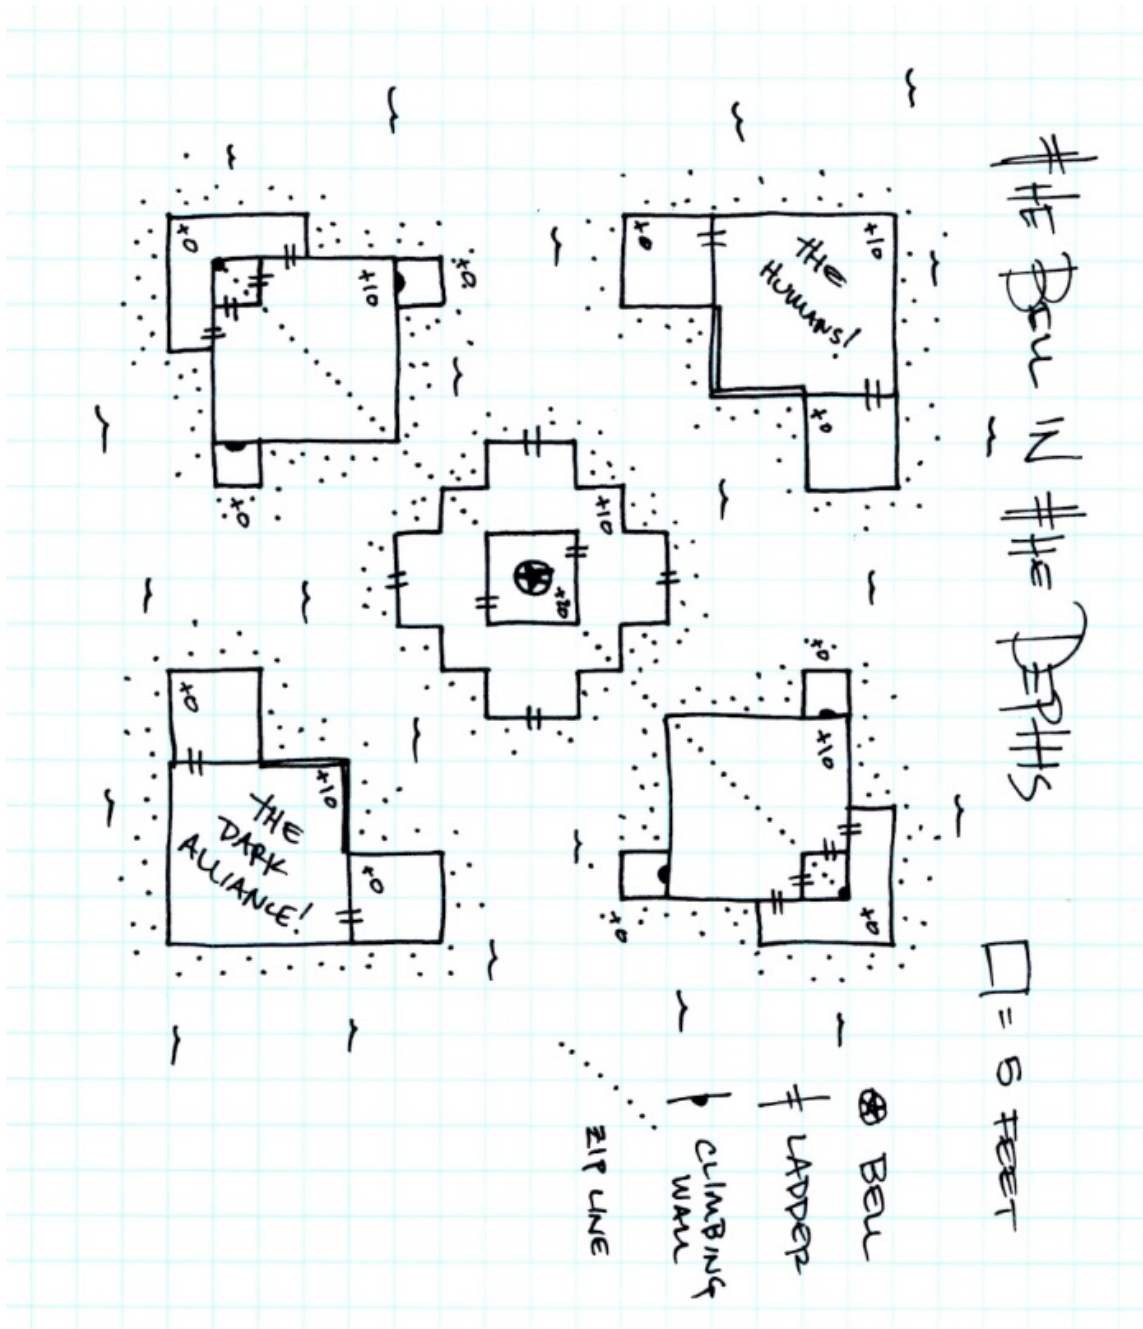 THE BELL IN THE DEPTHS
□ = 5 FEET
BELL
LADDER
CLIMBING
WALL
ZIP LINE
+10
THE
HUMANS!
+0
+0
+0
+10
+0
+0
+10
+20
+0
+10
+0
+0
+0
+10
+0
THE
DARK
ALLIANCE!